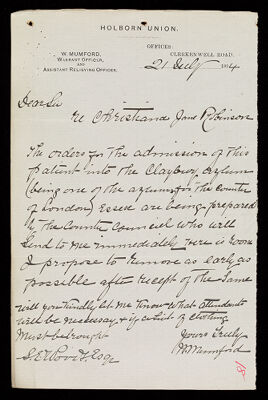 HOLBORN UNION.
OFFICES:
CLERKENWELL ROAD,
W. MUMFORD,
WARRANT OFFICER,
AND
ASSISTANT RELIEVING OFFICER.
21 July 1914
Dear Sir
re Christiana Jane Robinson
The orders for the admission of this
patient into the Claybury Asylum
(being one of the asylums for the County
of London) Essex are being prepared
by the County Council who will
send to me immediately there is room
I propose to remove as early as
possible after receipt of the same
will you kindly let me know what attendants
will be necessary & if a list of clothing
must be brought
Yours truly
W Mumford
Esq